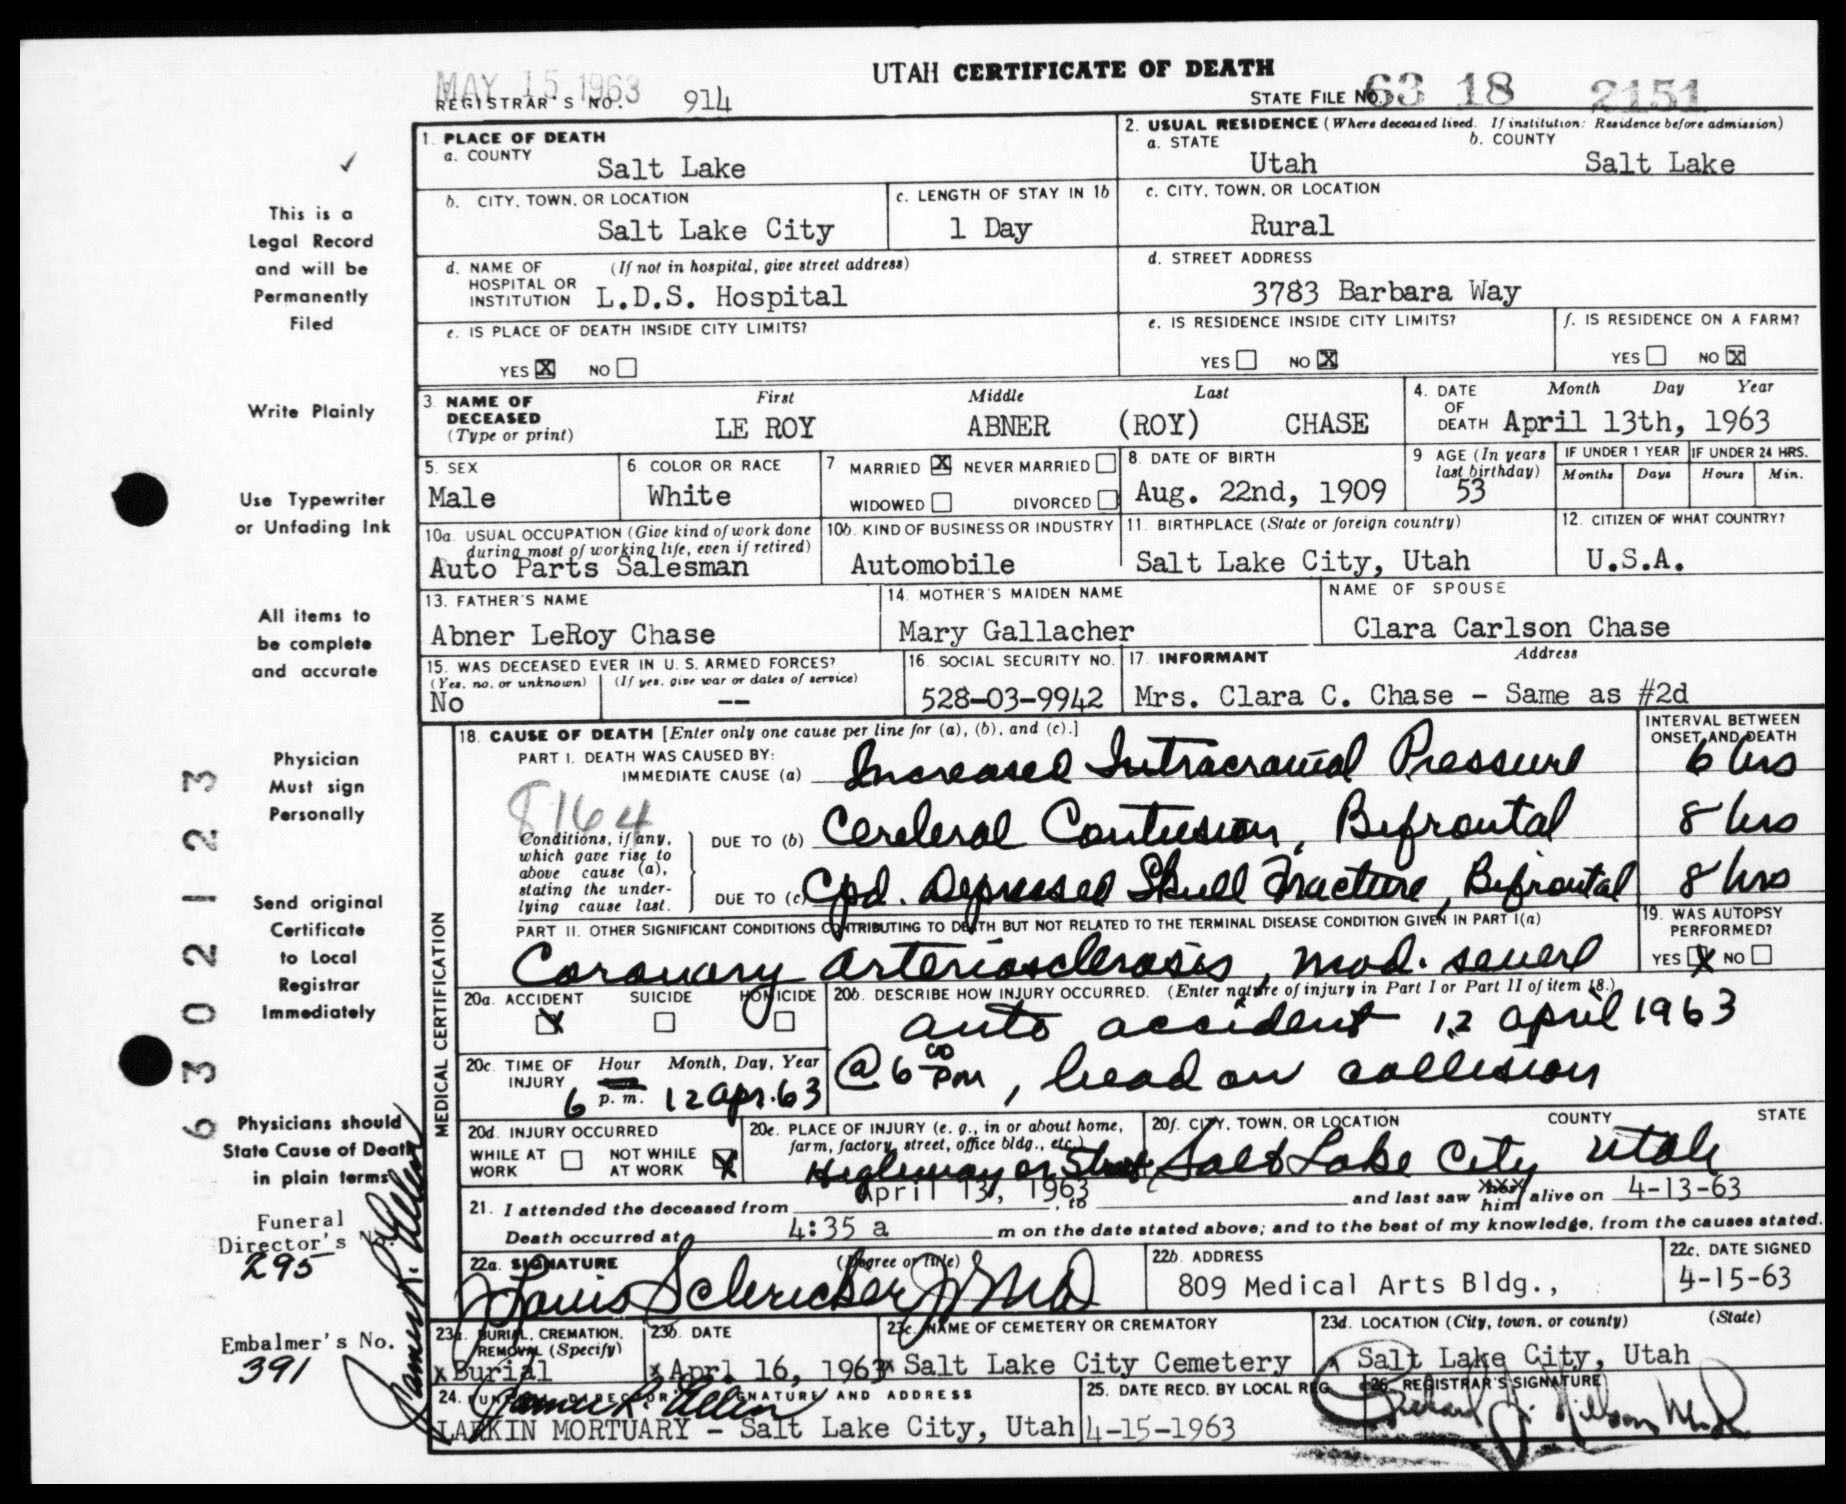 UTAH CERTIFICATE OF DEATH
MAY 15 1963
REGISTRAR'S NO. 914
STATE FILE NO. 63 18 2151
1. PLACE OF DEATH
a. COUNTY
Salt Lake
2. USUAL RESIDENCE (Where deceased lived. If institution: Residence before admission)
a. STATE b. COUNTY
Utah Salt Lake
b. CITY, TOWN, OR LOCATION
Salt Lake City
c. LENGTH OF STAY IN 1b
1 Day
c. CITY, TOWN, OR LOCATION
Rural
d. NAME OF HOSPITAL OR INSTITUTION (If not in hospital, give street address)
L.D.S. Hospital
d. STREET ADDRESS
3783 Barbara Way
e. IS PLACE OF DEATH INSIDE CITY LIMITS?
YES X NO
e. IS RESIDENCE INSIDE CITY LIMITS?
YES NO X
f. IS RESIDENCE ON A FARM?
YES NO X
3. NAME OF DECEASED (Type or print)
First Middle Last
LE ROY ABNER (ROY) CHASE
4. DATE OF DEATH Month Day Year
April 13th, 1963
5. SEX
Male
6. COLOR OR RACE
White
7. MARRIED X NEVER MARRIED
WIDOWED DIVORCED
8. DATE OF BIRTH
Aug. 22nd, 1909
9 AGE (In years last birthday)
53
IF UNDER 1 YEAR
Months Days
IF UNDER 24 HRS.
Hours Min.
10a. USUAL OCCUPATION (Give kind of work done during most of working life, even if retired)
Auto Parts Salesman
10b. KIND OF BUSINESS OR INDUSTRY
Automobile
11. BIRTHPLACE (State or foreign country)
Salt Lake City, Utah
12. CITIZEN OF WHAT COUNTRY?
U.S.A.
13. FATHER'S NAME
Abner LeRoy Chase
14. MOTHER'S MAIDEN NAME
Mary Gallacher
NAME OF SPOUSE
Clara Carlson Chase
15. WAS DECEASED EVER IN U. S. ARMED FORCES?
(Yes, no, or unknown) (If yes, give war or dates of service)
No --
16. SOCIAL SECURITY NO.
528-03-9942
17. INFORMANT Address
Mrs. Clara C. Chase - Same as #2d
MEDICAL CERTIFICATION
18. CAUSE OF DEATH [Enter only one cause per line for (a), (b), and (c).]
INTERVAL BETWEEN ONSET AND DEATH
PART I. DEATH WAS CAUSED BY:
IMMEDIATE CAUSE (a) Increased Intracranial Pressure 6 hrs
8164
Conditions, if any, which gave rise to above cause (a), stating the underlying cause last.
DUE TO (b) Cerebral Contusion, Bifrontal 8 hrs
DUE TO (c) Cpd. Depressed Skull Fracture, Bifrontal 8 hrs
PART II. OTHER SIGNIFICANT CONDITIONS CONTRIBUTING TO DEATH BUT NOT RELATED TO THE TERMINAL DISEASE CONDITION GIVEN IN PART I(a)
Coronary arteriosclerosis, mod. severe
19. WAS AUTOPSY PERFORMED?
YES X NO
20a. ACCIDENT X SUICIDE HOMICIDE
20b. DESCRIBE HOW INJURY OCCURRED. (Enter nature of injury in Part I or Part II of item 18.)
auto accident 12 april 1963
@ 6 00 pm, head on collision
20c. TIME OF INJURY Hour Month, Day, Year
6 p. m. 12 apr. 63
20d. INJURY OCCURRED
WHILE AT WORK NOT WHILE AT WORK X
20e. PLACE OF INJURY (e. g., in or about home, farm, factory, street, office bldg., etc.)
Highway or Street
20f. CITY, TOWN, OR LOCATION COUNTY STATE
Salt Lake City Utah
21. I attended the deceased from April 13, 1963, to and last saw xxx him alive on 4-13-63
Death occurred at 4:35 a m on the date stated above; and to the best of my knowledge, from the causes stated.
22a. SIGNATURE (Degree or title)
Louis Schricker Jr MD
22b. ADDRESS
809 Medical Arts Bldg.,
22c. DATE SIGNED
4-15-63
23a. BURIAL, CREMATION, REMOVAL (Specify)
x Burial
23b. DATE
x Aprl 16, 1963
23c. NAME OF CEMETERY OR CREMATORY
x Salt Lake City Cemetery
23d. LOCATION (City, town, or county) (State)
Salt Lake City, Utah
24. FUNERAL DIRECTOR'S SIGNATURE AND ADDRESS
James R. Allen
LARKIN MORTUARY - Salt Lake City, Utah
25. DATE RECD. BY LOCAL REG.
4-15-1963
26. REGISTRAR'S SIGNATURE
This is a
Legal Record
and will be
Permanently
Filed
Write Plainly
Use Typewriter
or Unfading Ink
All items to
be complete
and accurate
Physician
Must sign
Personally
Send original
Certificate
to Local
Registrar
Immediately
Physicians should
State Cause of Death
in plain terms
Funeral
Director's No.
295
Embalmer's No.
391
James R. Allen
6302123